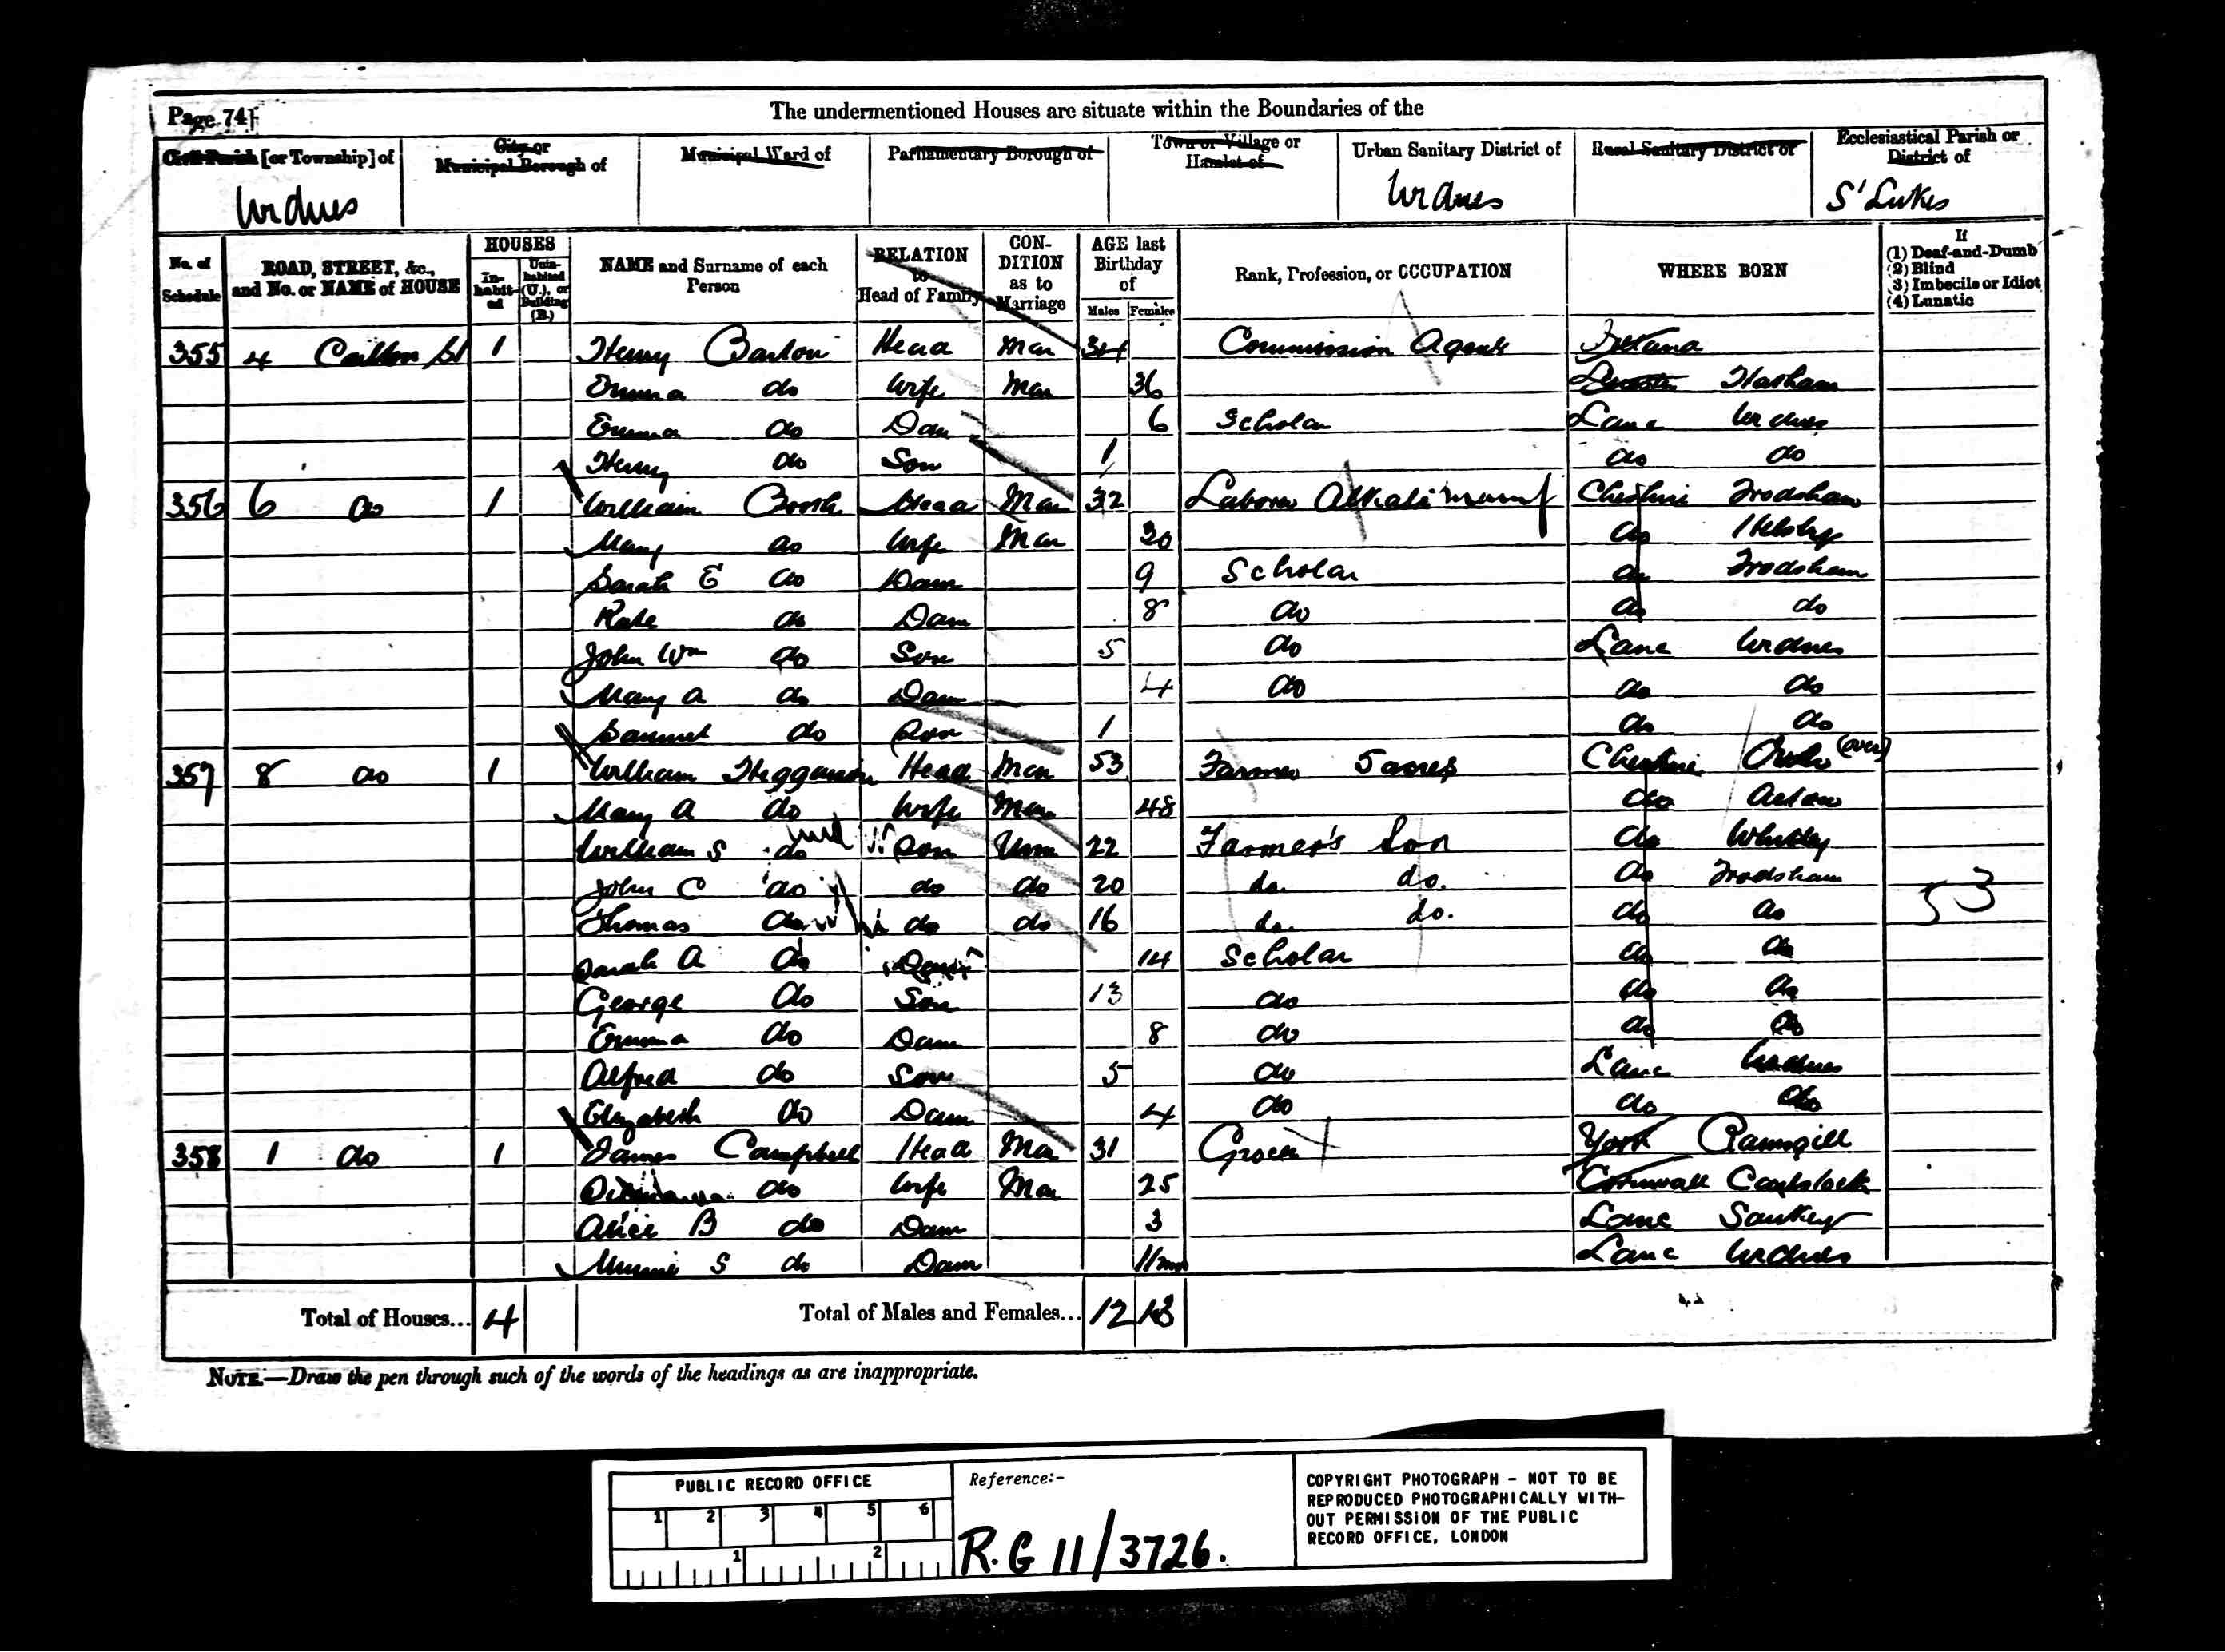 Page 74]
The undermentioned Houses are situate within the Boundaries of the
Civil Parish [or Township] of
City or Municipal Borough of
Municipal Ward of
Parliamentary Borough of
Town or Village or Hamlet of
Urban Sanitary District of
Rural Sanitary District of
Ecclesiastical Parish or District of
Widnes
Widnes
St Lukes
No. of Schedule
ROAD, STREET, &c., and No. or NAME of HOUSE
HOUSES
In-habit-ed
Unin-habited (U.), or Building (B.)
NAME and Surname of each Person
RELATION to Head of Family
CON-DITION as to Marriage
AGE last Birthday of
Males
Females
Rank, Profession, or OCCUPATION
WHERE BORN
If
(1) Deaf-and-Dumb
(2) Blind
(3) Imbecile or Idiot
(4) Lunatic
355 4 St 1 Henry Barton Head Mar 34 Commission Agent
Emma do Wife Mar 36
Emma do Daur 6 Scholar Lanc Widnes
Henry do Son 1 do do
356 6 do 1 William Booth Head Mar 32 Laborer Alkali Manuf Cheshire Frodsham
Mary do Wife Mar 30 do Helsby
Sarah E do Daur 9 Scholar do Frodsham
Kate do Daur 8 do do do
John Wm do Son 5 do Lanc Widnes
Mary A do Daur 4 do do do
Samuel do Son 1 do do
357 8 do 1 William Head Mar 53 Farmer 5 acres Cheshire (over)
Mary A do Wife Mar 48 do Acton
William S do Son Unm 22 Farmer's Son do Whitley
John C do do do 20 do. do. do Frodsham
Thomas do do do 16 do. do. do do
Sarah A do Daur 14 Scholar do do
George do Son 13 do do do
Emma do Daur 8 do do do
Alfred do Son 5 do Lanc Widnes
Elizabeth do Daur 4 do do do
53
358 1 do 1 James Campbell Head Mar 31 Grocer York Ramsgill
do Wife Mar 25 Cornwall
Alice B do Daur 3 Lanc Sankey
Minnie S do Daur 11 mo Lanc Widnes
Total of Houses... 4
Total of Males and Females... 12 13
NOTE.—Draw the pen through such of the words of the headings as are inappropriate.
PUBLIC RECORD OFFICE
1 2 3 4 5 6
1 2
Reference:-
R.G 11/3726.
COPYRIGHT PHOTOGRAPH - NOT TO BE
REPRODUCED PHOTOGRAPHICALLY WITH-
OUT PERMISSION OF THE PUBLIC
RECORD OFFICE, LONDON